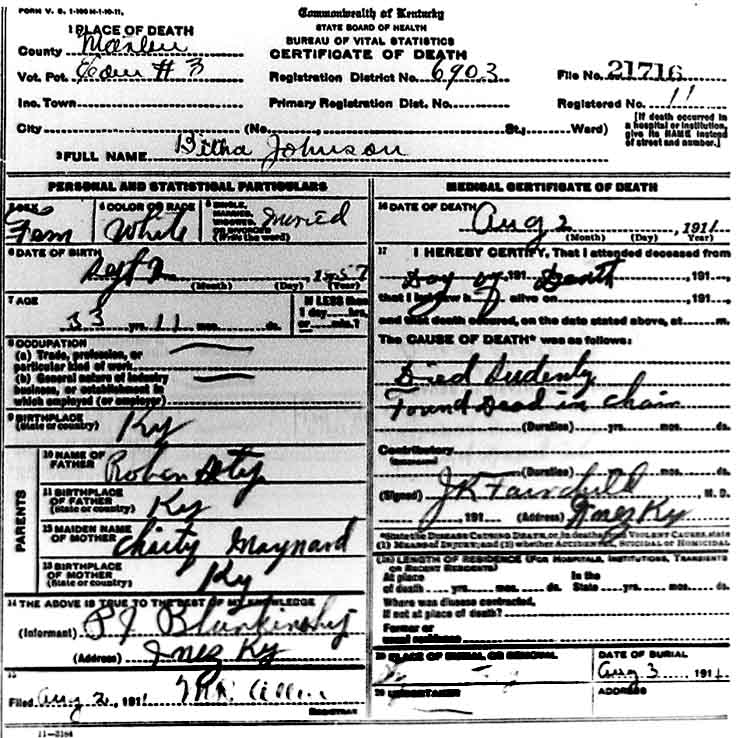 FORM V. S. 1-100M-1-10-11.
Commonwealth of Kentucky
STATE BOARD OF HEALTH
BUREAU OF VITAL STATISTICS
CERTIFICATE OF DEATH
1 PLACE OF DEATH
County
Vot. Pct. # 3
Registration District No. 6903
File No. 21716
Inc. Town
Primary Registration Dist. No.
Registered No. 11
City (No. St., Ward)
[If death occurred in a hospital or institution, give its NAME instead of street and number.]
2 FULL NAME Bitha Johnson
PERSONAL AND STATISTICAL PARTICULARS
3 SEX Fem
4 COLOR OR RACE White
5 SINGLE, MARRIED, WIDOWED, OR DIVORCED (Write the word)
6 DATE OF BIRTH
(Month) (Day) (Year)
7 AGE
33 yrs. 11 mos. ds.
If LESS than 1 day, hrs. or min.?
8 OCCUPATION
(a) Trade, profession, or
particular kind of work
(b) General nature of industry
business, or establishment in
which employed (or employer)
9 BIRTHPLACE
(State or country) Ky
PARENTS
10 NAME OF
FATHER
11 BIRTHPLACE
OF FATHER
(State or country) Ky
12 MAIDEN NAME
OF MOTHER Charity Maynard
13 BIRTHPLACE
OF MOTHER
(State or country) Ky
14 THE ABOVE IS TRUE TO THE BEST OF MY KNOWLEDGE
(Informant) P J
(Address) Inez Ky
15
Filed Aug 2, 1911
REGISTRAR
11-3184
MEDICAL CERTIFICATE OF DEATH
16 DATE OF DEATH Aug 2, 1911
(Month) (Day) (Year)
17 I HEREBY CERTIFY, That I attended deceased from
Day of 191 Death, 191
that I last saw h alive on, 191
and that death occurred, on the date stated above, at m.
The CAUSE OF DEATH* was as follows:
Died Sudenly
Found Dead in chair
(Duration) yrs. mos. ds.
Contributory
(Duration) yrs. mos. ds.
(Signed) J K Fairchild, M. D.
, 191 (Address) Inez Ky
*State the DISEASE CAUSING DEATH, or, in deaths from VIOLENT CAUSES, state
(1) MEANS OF INJURY; and (2) whether ACCIDENTAL, SUICIDAL or HOMICIDAL
(18) LENGTH OF RESIDENCE (FOR HOSPITALS, INSTITUTIONS, TRANSIENTS
OR RECENT RESIDENTS)
At place of death yrs. mos. ds. In the State yrs. mos. ds.
Where was disease contracted,
if not at place of death?
Former or
usual residence
19 PLACE OF BURIAL OR REMOVAL
DATE OF BURIAL
Aug 3 1911
20 UNDERTAKER
ADDRESS